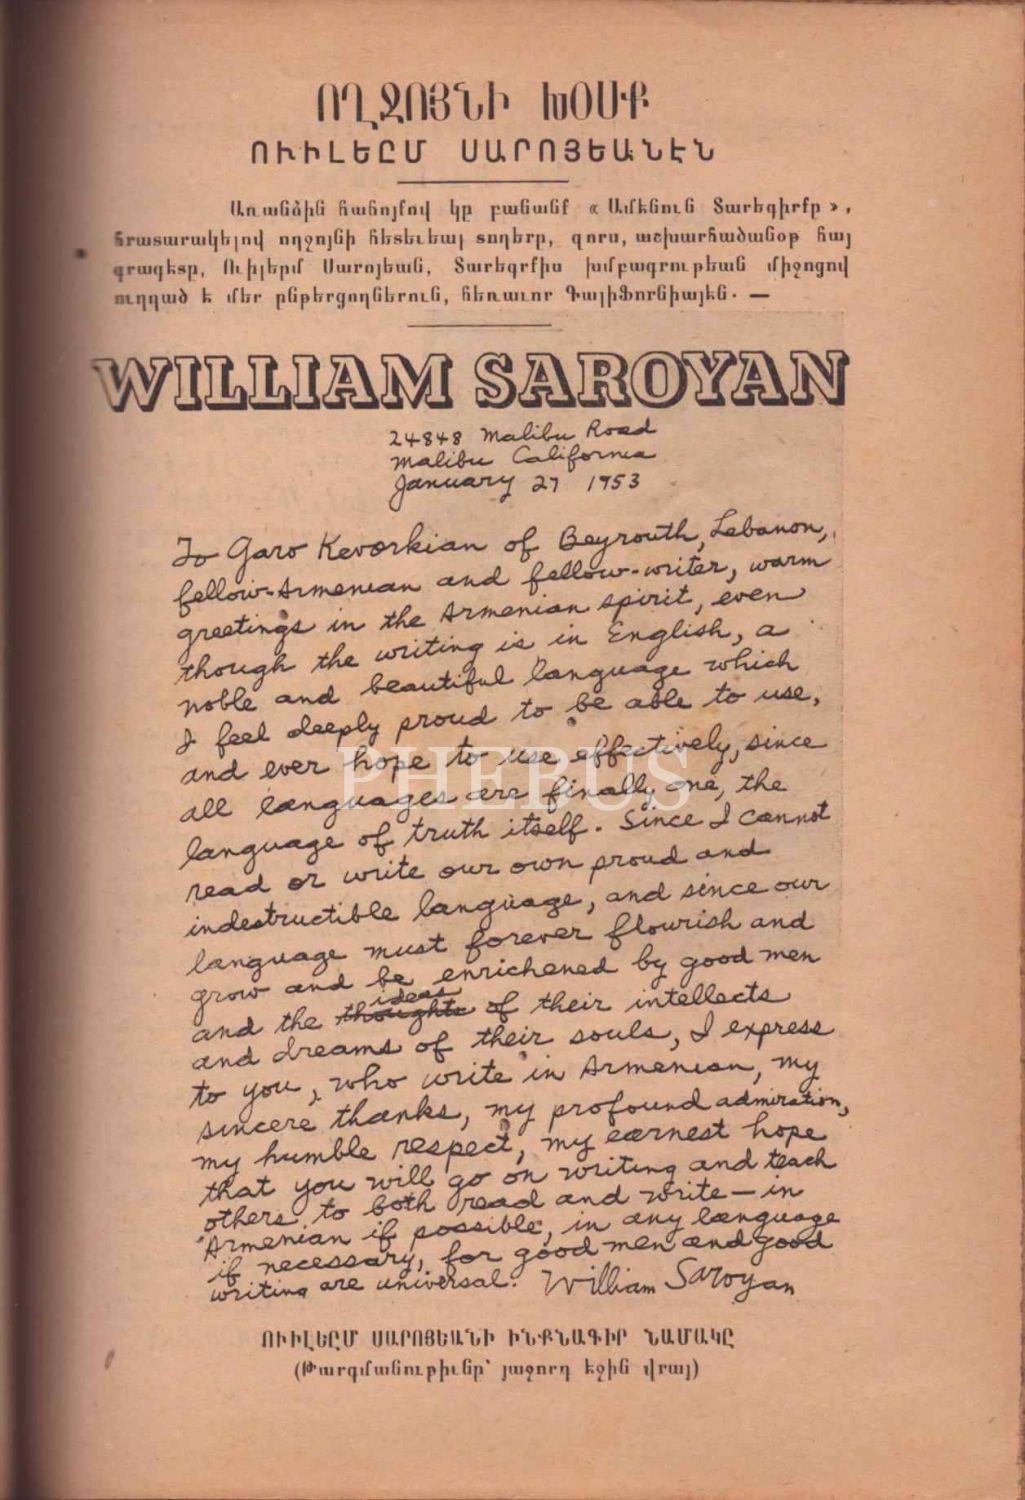 ՈՂՋՈՅՆԻ ԽՕՍՔ
ՈՒԻԼԵԸՄ ՍԱՐՈՅԵԱՆԷՆ
Առանձին հաճոյքով կը բանանք « Ամէնուն Տարեգիրքը »,
հրատարակելով ողջոյնի հետեւեալ տողերը, զորս, աշխարհածանօթ հայ
գրագէտը, Ուիլերմ Սարոյեան, Տարեգրքիս խմբագրութեան միջոցով
ուղղած է մեր ընթերցողներուն, հեռաւոր Գալիֆորնիայէն. —
WILLIAM SAROYAN
24848 Malibu Road
Malibu California
January 27 1953
To Garo Kevorkian of Beyrouth, Lebanon,
fellow-Armenian and fellow-writer, warm
greetings in the Armenian spirit, even
though the writing is in English, a
noble and beautiful language which
I feel deeply proud to be able to use,
and ever hope to use effectively, since
all languages are finally one, the
language of truth itself. Since I cannot
read or write our own proud and
indestructible language, and since our
language must forever flourish and
grow and be enrichened by good men
and the thoughts ideas of their intellects
and dreams of their souls, I express
to you, who write in Armenian, my
sincere thanks, my profound admiration,
my humble respect, my earnest hope
that you will go on writing and teach
others to both read and write — in
Armenian if possible, in any language
if necessary, for good men and good
writing are universal. William Saroyan
ՈՒԻԼԵԸՄ ՍԱՐՈՅԵԱՆԻ ԻՆՔՆԱԳԻՐ ՆԱՄԱԿԸ
(Թարգմանութիւնը՝ յաջորդ էջին վրայ)
PHEBUS